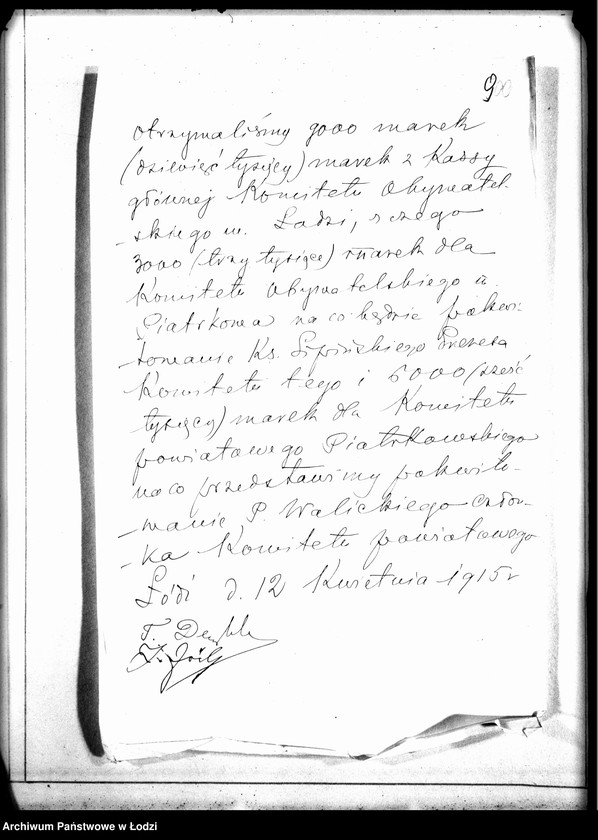 9
Otrzymaliśmy 9000 marek
(dziewięć tysięcy) marek z Kassy
głównej Komitetu Obywatel-
-skiego m. Łodzi, z czego
3000 (trzy tysiące) marek dla
Komitetu Obywatelskiego m
Piotrkowa na co będzie pokwi-
-towanie Ks. Prezesa
Komitetu tego i 6000 (sześć
tysięcy) marek dla Komitetu
powiatowego Piotrkowskiego
na co przedstawimy pokwito-
-wanie P. Walickiego człon-
-ka Komitetu powiatowego
Łódź d. 12 Kwietnia 1915 r
Archiwum Państwowe w Łodzi